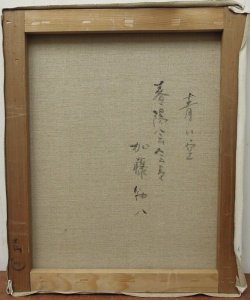 青い空
春陽会会員
加藤
八